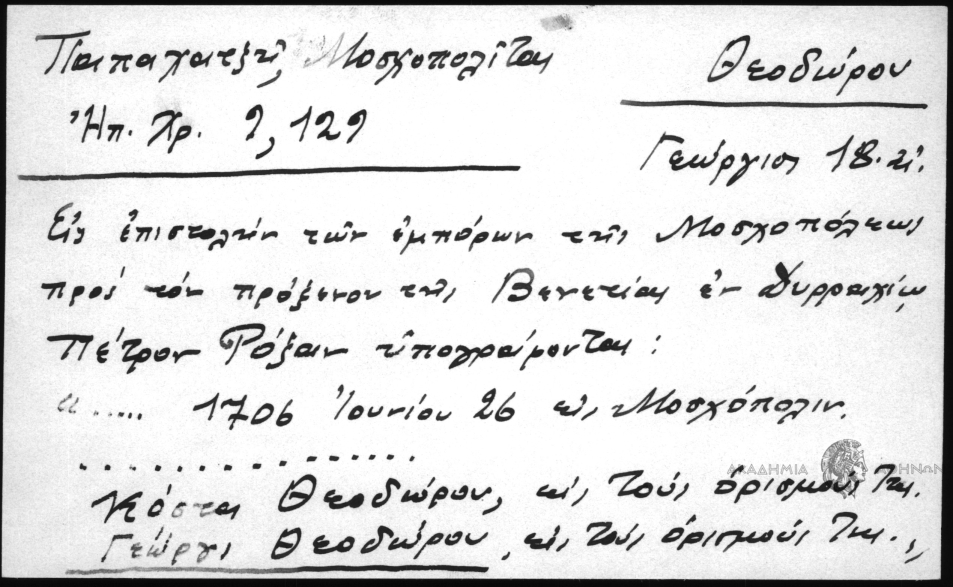 Παπαχατζῆ, Μοσχοπολῖται
Θεοδώρου
Ἠπ. Χρ. 9, 129
Γεώργιος 18. αἰ.
Εἰς ἐπιστολὴν τῶν ἐμπόρων τῆς Μοσχοπόλεως
πρὸς τὸν πρόξενον τῆς Βενετίας ἐν Δυρραχίῳ
Πέτρον Ρόξαν ὑπογράφονται :
«..... 1706 Ἰουνίου 26 εἰς Μοσχόπολιν.
..................
Κόστας Θεοδώρου, εἰς τοὺς ὁρισμούς της.
Γεώργι Θεοδώρου, εἰς τοὺς ὁρισμούς της.»
ΑΚΑΔΗΜΙΑ ΑΘΗΝΩΝ